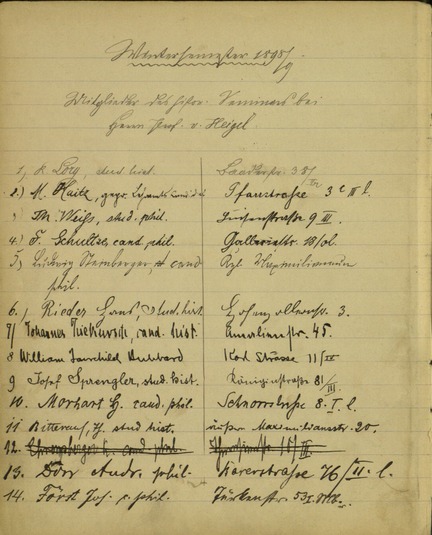 Wintersemester 1898/9.
Mitglieder des histor. Seminars bei
Herrn Prof. v. Heigel.
1.) K. Lory, stud. hist. Baaderstr. 38/
2.) M. Kaitz, gepr. Pfarrstraße 3c II l.
3) Th. Weiß, stud. phil. 9 III.
4.) F. Schultze, cand. phil. Galleriestr. 18/01.
5) Ludwig Sternberger, cand. Kgl. Maximilianeum
phil.
6.) Rieder Hans, stud. hist. Hohenzollernstr. 3.
7) Johannes cand. hist. Amalienstr. 45.
8 William Fairchild Karl Strasse 11/II
9 Josef Sprengler, stud. hist. Königinstraße 81/III.
10. Morhart G. cand. phil. Schnorrstraße 8. I. l.
11 Bitterauf, Th. stud. hist. äußer Maximiliansstr. 20.
12. cand. phil.
13. Dörr Andr. phil. Karerstraße 76/II. l.
14. Först Jos. c. phil. Türkenstr. 53 I.